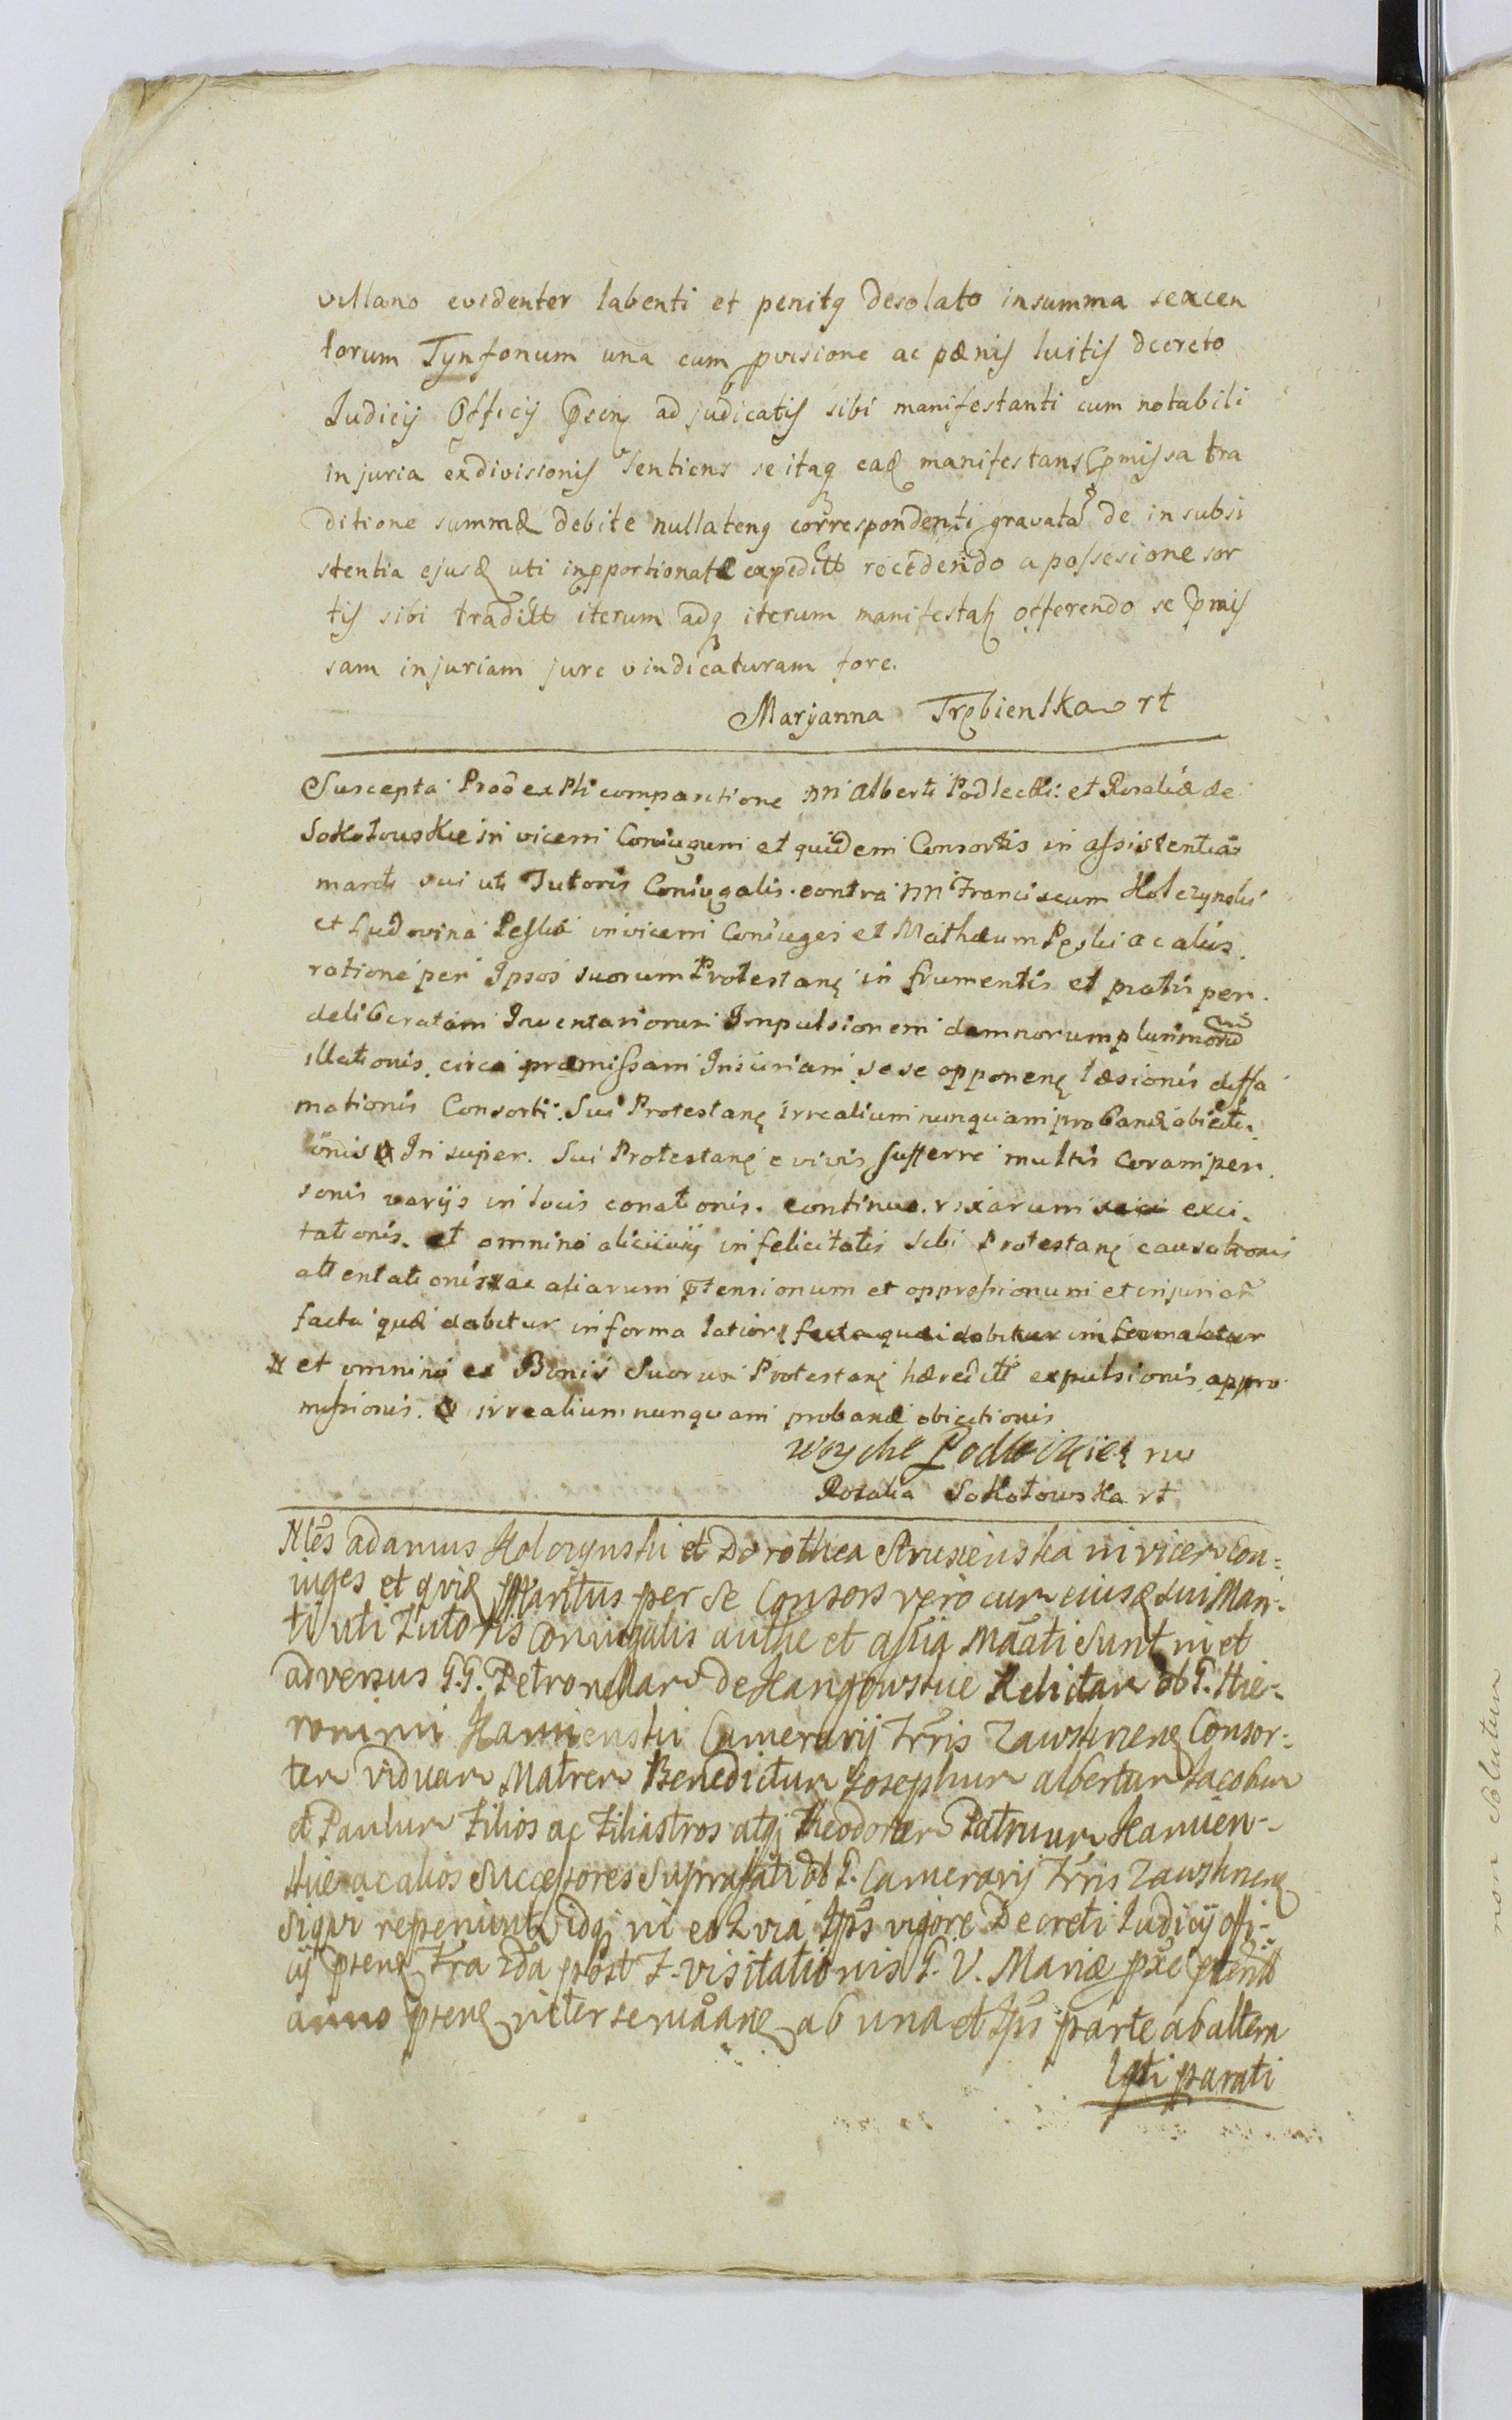 villano evidenter labenti et penitq desolato in summa sexcen
torum Tynfonum una cum pvisione ac pænis luitis decreto
Iudicij Officij psen ad judicatis sibi manifestanti cum notabili
injuria ex divisionis sentiens se itaq ead manifestans pmissa tra
ditione summæ debite nullatenq correspondenti gravata de in subsi
stentia ejusd uti inpportionatæ expeditt recedendo a possesione sor
tis sibi traditt iterum adq iterum manifestat offerendo se pmis
sam injuriam jure vindicaturam fore.
Maryanna Trębienska rt
Suscepta Prõõ ex Pti comparitione M Alberti Podlecki et Rosaliæ de
Sokołouskie in vicem Coniugum et quidem Consortis in assistentia
mariti sui uti Tutoris Coniugalis contra M Franciscum Holczynski
et Ludovina Peska in vicem Coniuges et Mathæum Peski ac alios
ratione per Ipsos suorum Protestan in frumentis et pratis per
deliberatam Inventariorum Impulsionem damnorum plurimorũ
illationis circa præmissam Iniuriam sese opponen læsionis diffa
mationis Consorti Sui Protestan irrealium nunquam proband obiecti
onis In super Sui Protestan e vivis sufferre multis coram per
sonis varijs in locis conationis continuo rixarum exci
tationis et omnino alicuiq infelicitatis sibi Protestan causationis
attentationis ac aliarum ptensionum et oppressionum et injuriar
facta quæ dabitur in forma latiori facta quæ dabitur in forma latiori
et omnino ex Bonis Suorum Protestan hæreditt expulsionis appro
missionis irrealium nunquam proband obiectionis
Woyche Podleckie rw
Rosalia Sokołowska rt
Nles Adamus Holczynski et Dorothea Strusienska in vicem Con=
iuges et quid Maritus per se Consors vero cum eiusd sui Mari=
ti uti Tutoris Coniugalis authe et assta mãati sunt in et
adversus G.G. Petronellam de Kangowskie Relictam ol G. Hie=
ronimi Kamienski Camerarij Trris Zawskrnen Consor=
tem viduam Matrem Benedictum Josephum Albertum Jacobum
et Paulum Filios ac Filiastros atq Theodorum Patruum Kamien=
skie ac alios Successores Suprafati ol G. Camerarij Trris Zawskrnen
Siqui reperiunt idq in eo Quia Ips vigore Decreti Iudicij offi=
cij psen Fra 2da post F. visitationis G. V. Mariæ pxe pteritt
anno psen inter se mãan ab una et Ips parte ab altera
lqti parati
non solutum